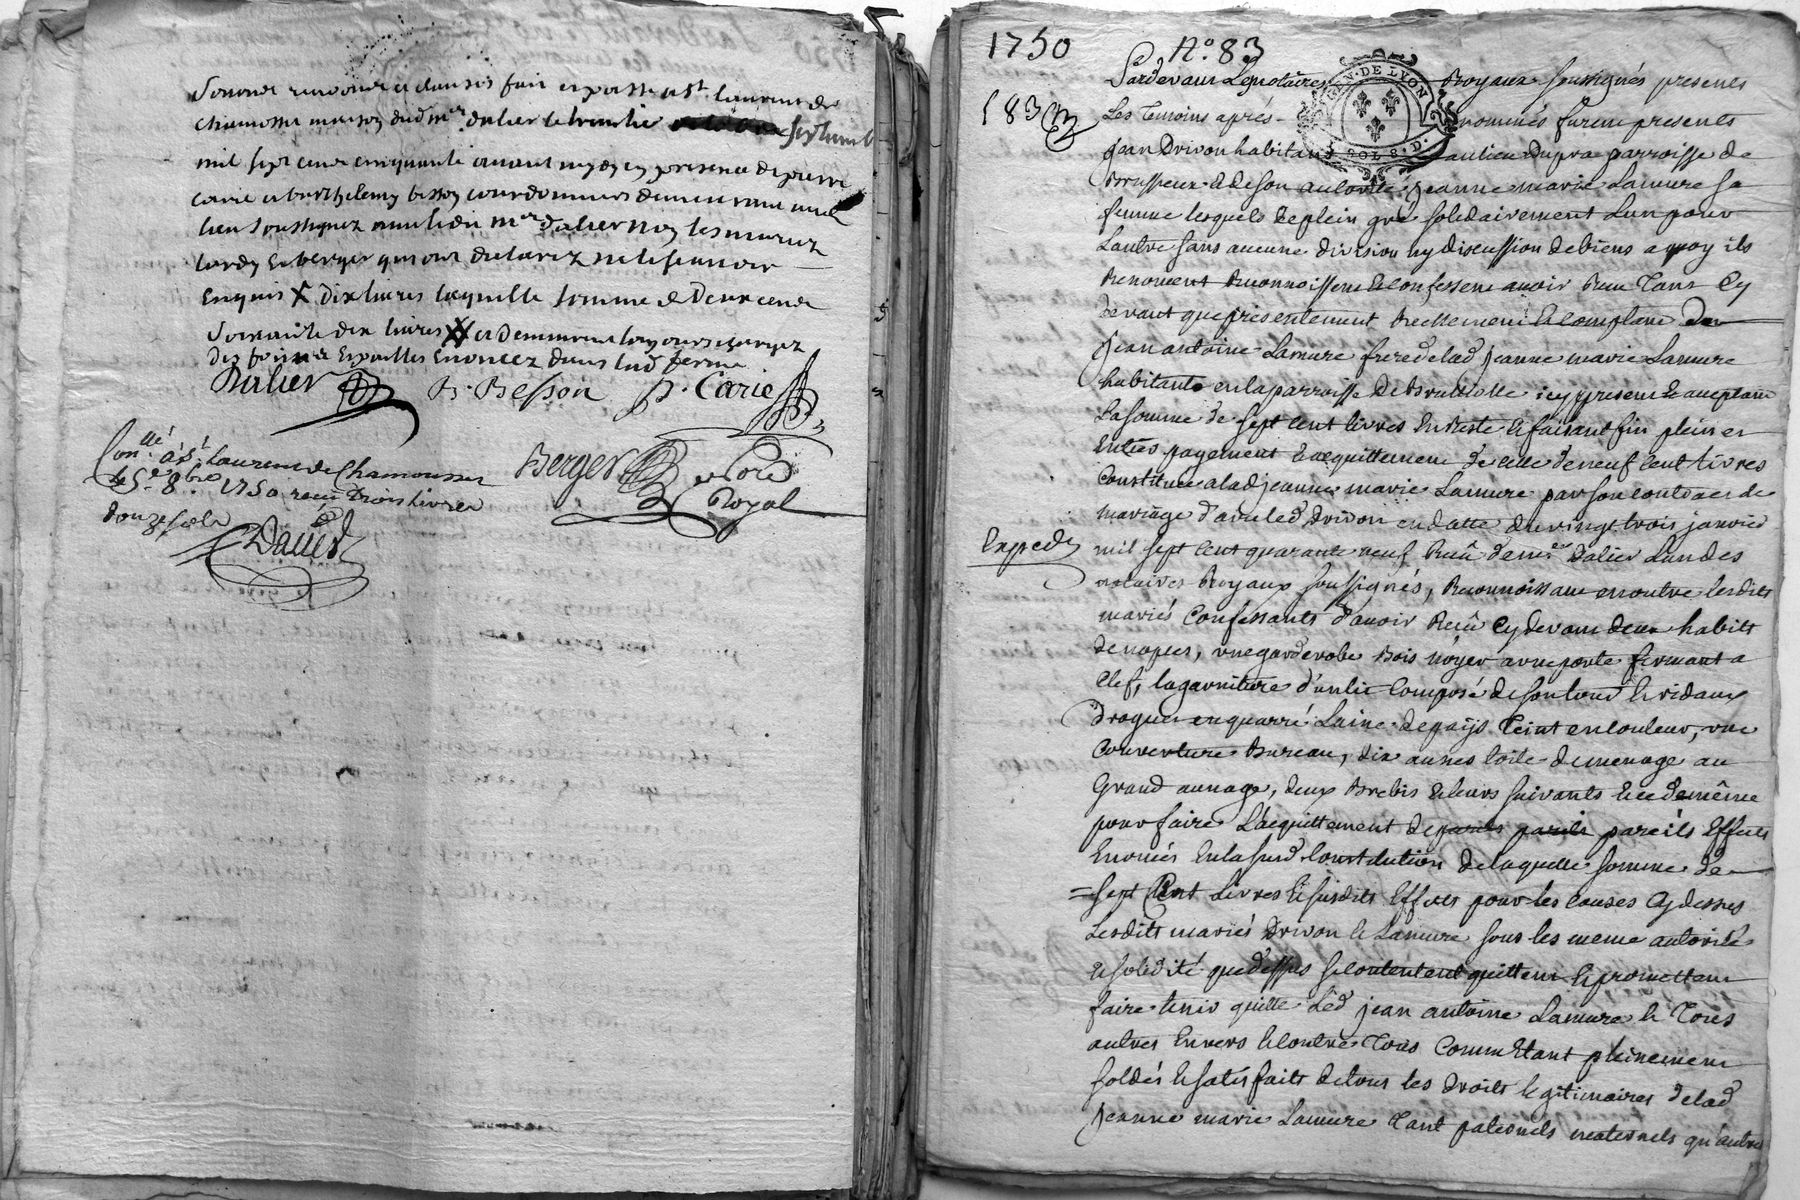 mil sept cent cinquante avant midy en presence de pierre
carie et barthelemy besson courdonniers demeurant aud
lieu soussignez avec led m.re dalier non les mariez
lardy et berger qui ont declarez ne le scavoir
enquis X dix livres laquelle somme de deux cent
soixante dix livres XX et demeurent toujours chargez
Dalier B. Besson p. Carie
Con.llé à S.t Laurent de Chamousset
le 5.e 8.bre 1750 reçu trois livres
douze sols
Berger
Royal
1750 N.o 83
GEN. DE LYON
SOLS. D.
183
Pardevant Les notaires Royaux soussignés presents
Les Temoins aprés nommés furent presents
jean Drivon habitant au lieu Dupra parroisse de
Brussieux et de son autorité jeanne marie Lamure sa
femme lesquels de plein gré solidairement L'un pour
L'autre sans aucune division ny discussion de biens a quoy ils
Renoncent Reconnoissent et confessent avoir Reçu Tant Cy
devant que présentement Reellement et comptant de
jean antoine Lamure frere de lad jeanne marie Lamure
habitant en la parroisse de Brullolle icy present et acceptant
La somme de sept cent livres En Reste et faisant fin plein et
Entier payement et acquittement de celle de neuf cent Livres
Constituée a lad jeanne marie Lamure par son contract de
mariage d'avec led Drivon en datte du vingt trois janvier
Expedié
mil sept cent quarante neuf Reçu de m.re Dalier L'un des
notaires Royaux soussignés, Reconnoissant en outre lesdits
mariés Confessants d'avoir Reçu Cy devant deux habits
de nopces, une garderobe Bois noyer a une porte fermant a
Clef, la garniture d'un lit Composé de son tour et ridaux
Droguet en quarré Laine de pays Teint en couleur, une
Couverture Bureau, dix aunes toile de menage au
Grand aunage, deux Brebis et leurs suivants et ce de même
pour faire L'acquittement de pareils pareils pareils Effects
Enoncés En la susd Constitution de laquelle somme de
= sept Cent Livres et susdits Effects pour les causes Cy dessus
Lesdits mariés Drivon et Lamure sous les meme autorité
et solidité que dessus se contentent quittent et promettent
faire tenir quitte Led jean antoine Lamure et Tous
autres Envers et contre Tous Comm Etant pleinement
soldés et satisfaits de tous les droits legitimaires de lad
jeanne marie Lamure Tant paternels maternels qu'autres